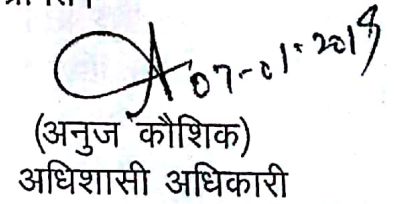 07-01-2019
(अनुज कौशिक)
अधिशासी अधिकारी